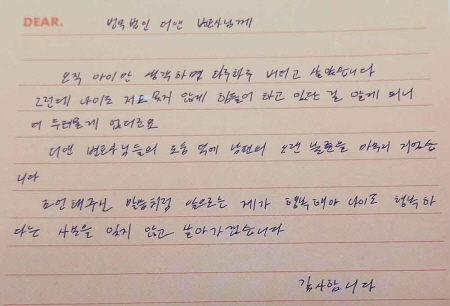 DEAR. 법무법인 더앤 변호사님께
오직 아이만 생각하며 하루하루 버티고 살았습니다
그런데 아이도 저도 못지 않게 힘들어 하고 있단 걸 알게 되니
더 두려울게 없더군요
더앤 변호사님들의 도움 덕에 남편의 오랜 불륜을 마무리 지었습
니다
조언해주신 말씀처럼 앞으로는 제가 행복해야 아이도 행복하
다는 사실을 잊지 않고 살아가겠습니다
감사합니다